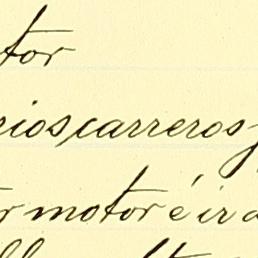 tor
rios carreros
r motor é ir a